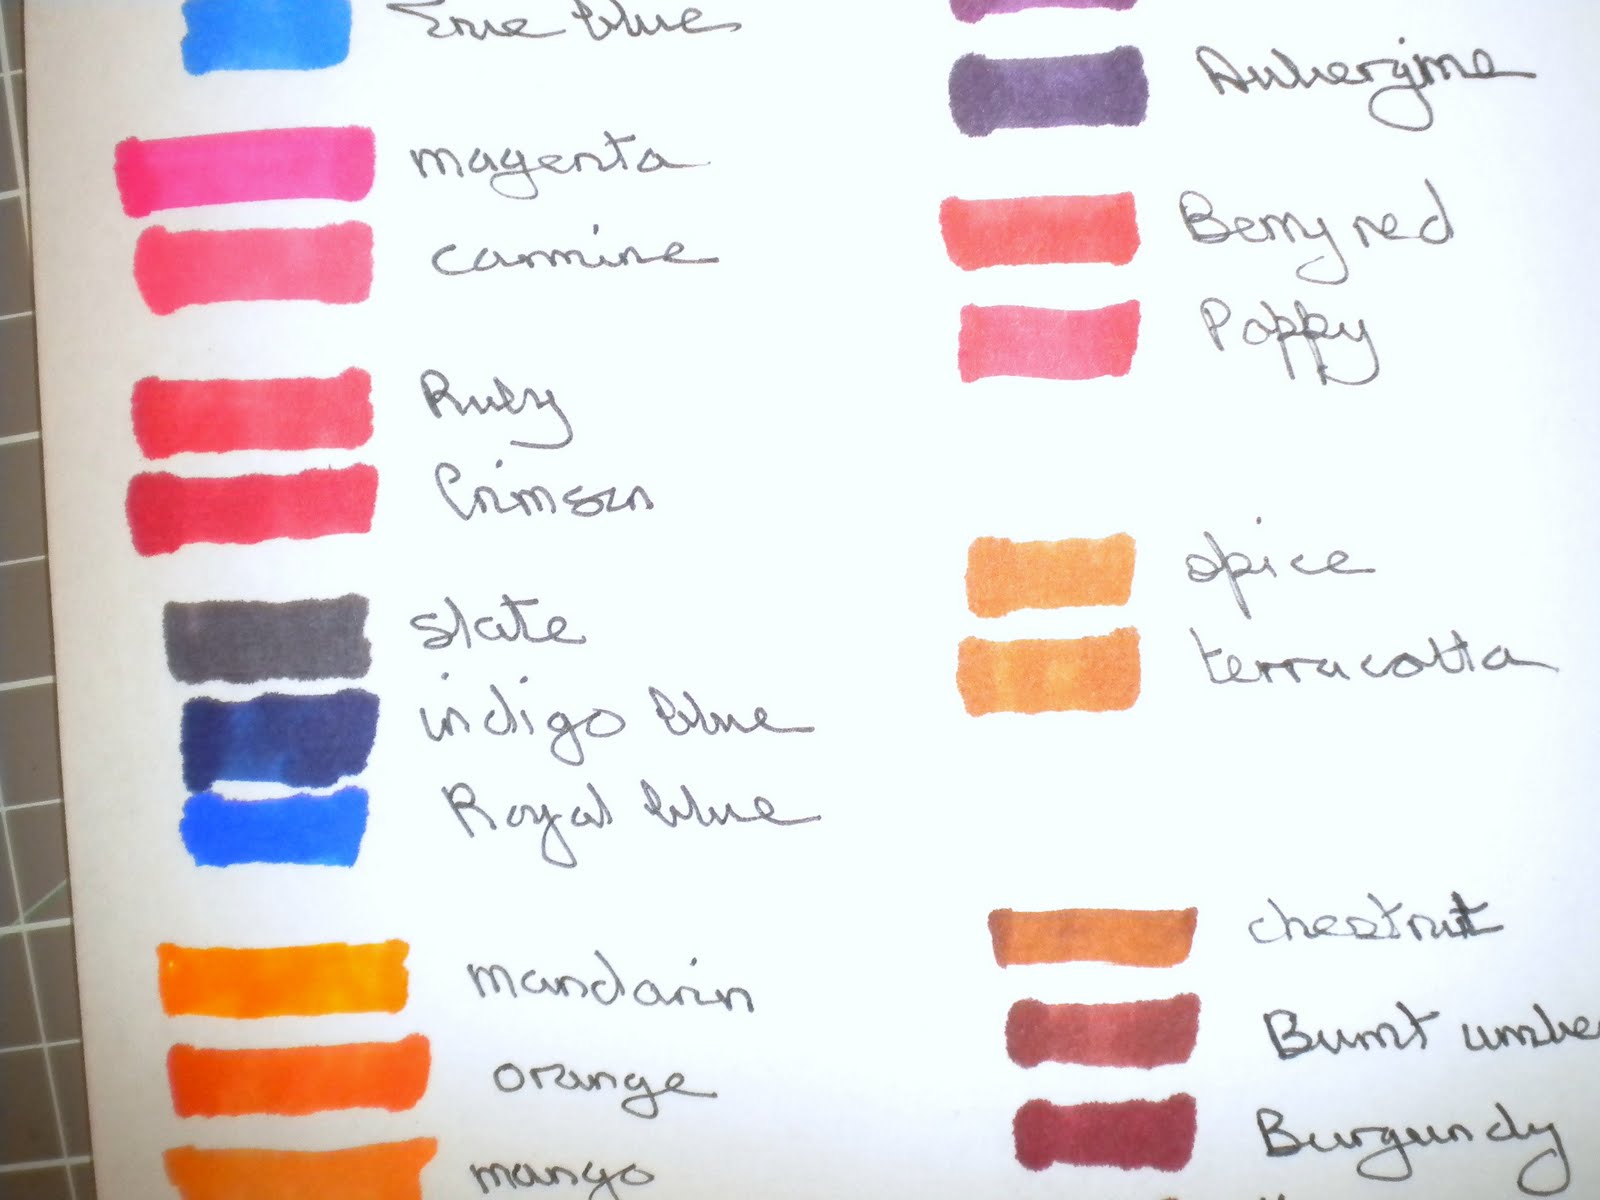 blue
magenta
carmine
Ruby
Crimson
slate
indigo blue
Royal blue
mandarin
orange
mango
Aubergine
Berry red
Poppy
spice
terracotta
chestnut
Burnt umbe
Burgundy